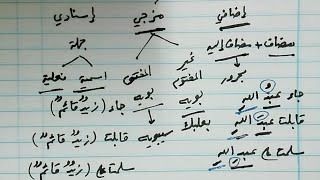 إضافي مزجي إسنادي
مضاف + مضاف إليه غير المختوم جملة
مجرور بويه المختوم بويه اسمية فعلية
جاء عبدُ اللهِ بعلبك سيبويه جاء (زيدٌ قائمٌ)
قابلت عبدَ اللهِ قابلت (زيدٌ قائمٌ)
سلمت على عبدِ اللهِ سلمت على (زيدٌ قائمٌ)